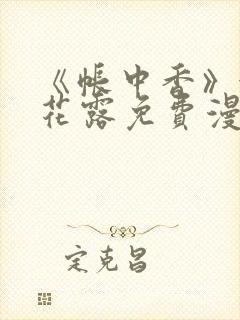 《帐中香》
花露免费漫
定克昌